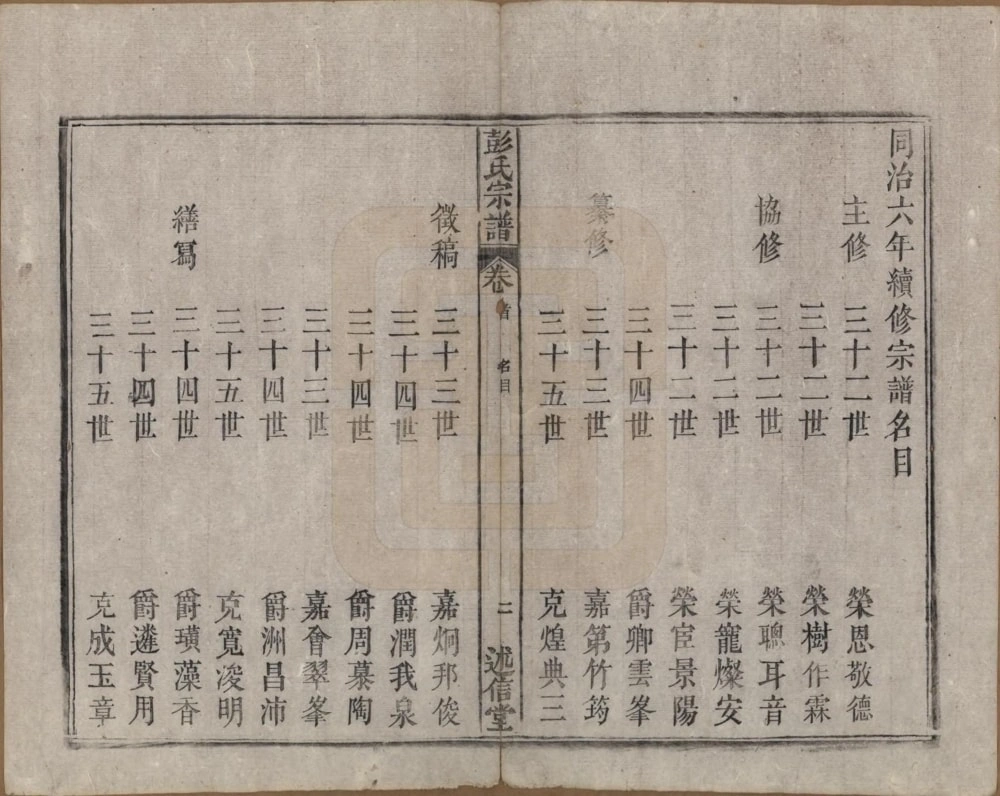 同治六年續修宗譜名目
主修 三十二世 榮恩敬德
三十二世 榮樹作霖
協修 三十二世 榮聰耳音
三十二世 榮寵燦安
三十二世 榮宦景陽
三十四世 爵卿雲峯
纂修 三十三世 嘉第竹筠
三十五世 克煌典三
彭氏宗譜 卷首 名目 二 述信堂
徵稿 三十三世 嘉炯邦俊
三十四世 爵潤我泉
三十四世 爵周慕陶
三十三世 嘉會翠峯
三十四世 爵洲昌沛
三十五世 克寬浚明
繕寫 三十四世 爵璜藻香
三十四世 爵遴賢用
三十五世 克成玉章